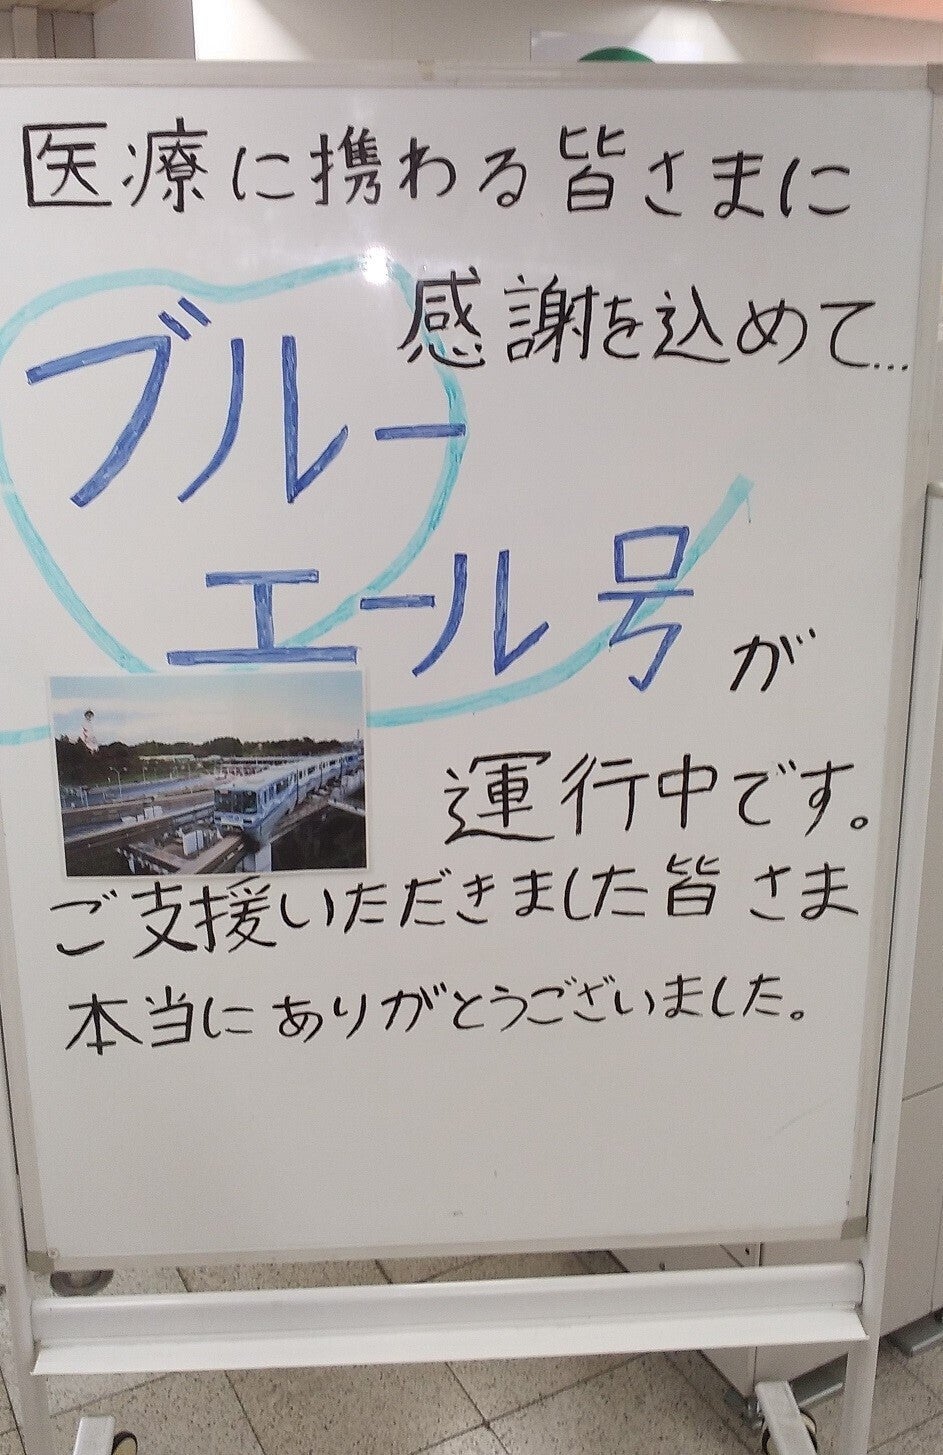 医療に携わる皆さまに
感謝を込めて…
ブルー
エール号が
運行中です。
ご支援いただきました皆さま
本当にありがとうございました。